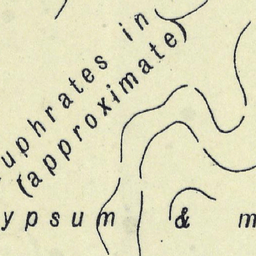 uphrates in
(approximate)
ypsum & m